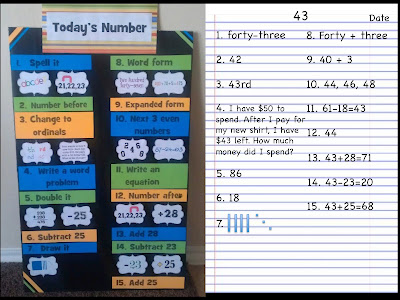 Today's Number
1. Spell it
abcde
21,22,23
2. Number before
3. Change to
ordinals
4. Write a word
problem
5. Double it
-25
6. Subtract 25
7. Draw it
8. Word form
9. Expanded form
10. Next 3 even
numbers
11. Write an
equation
12. Number after
21,22,23
+28
13. Add 28
14. Subtract 23
-23
+25
15. Add 25
43
Date
1. forty-three
2. 42
3. 43rd
4. I have $50 to
spend. After I pay for
my new shirt, I have
$43 left. How much
money did I spend?
5. 86
6. 18
7.
8. Forty + three
9. 40 + 3
10. 44, 46, 48
11. 61-18=43
12. 44
13. 43+28=71
14. 43-23=20
15. 43+25=68